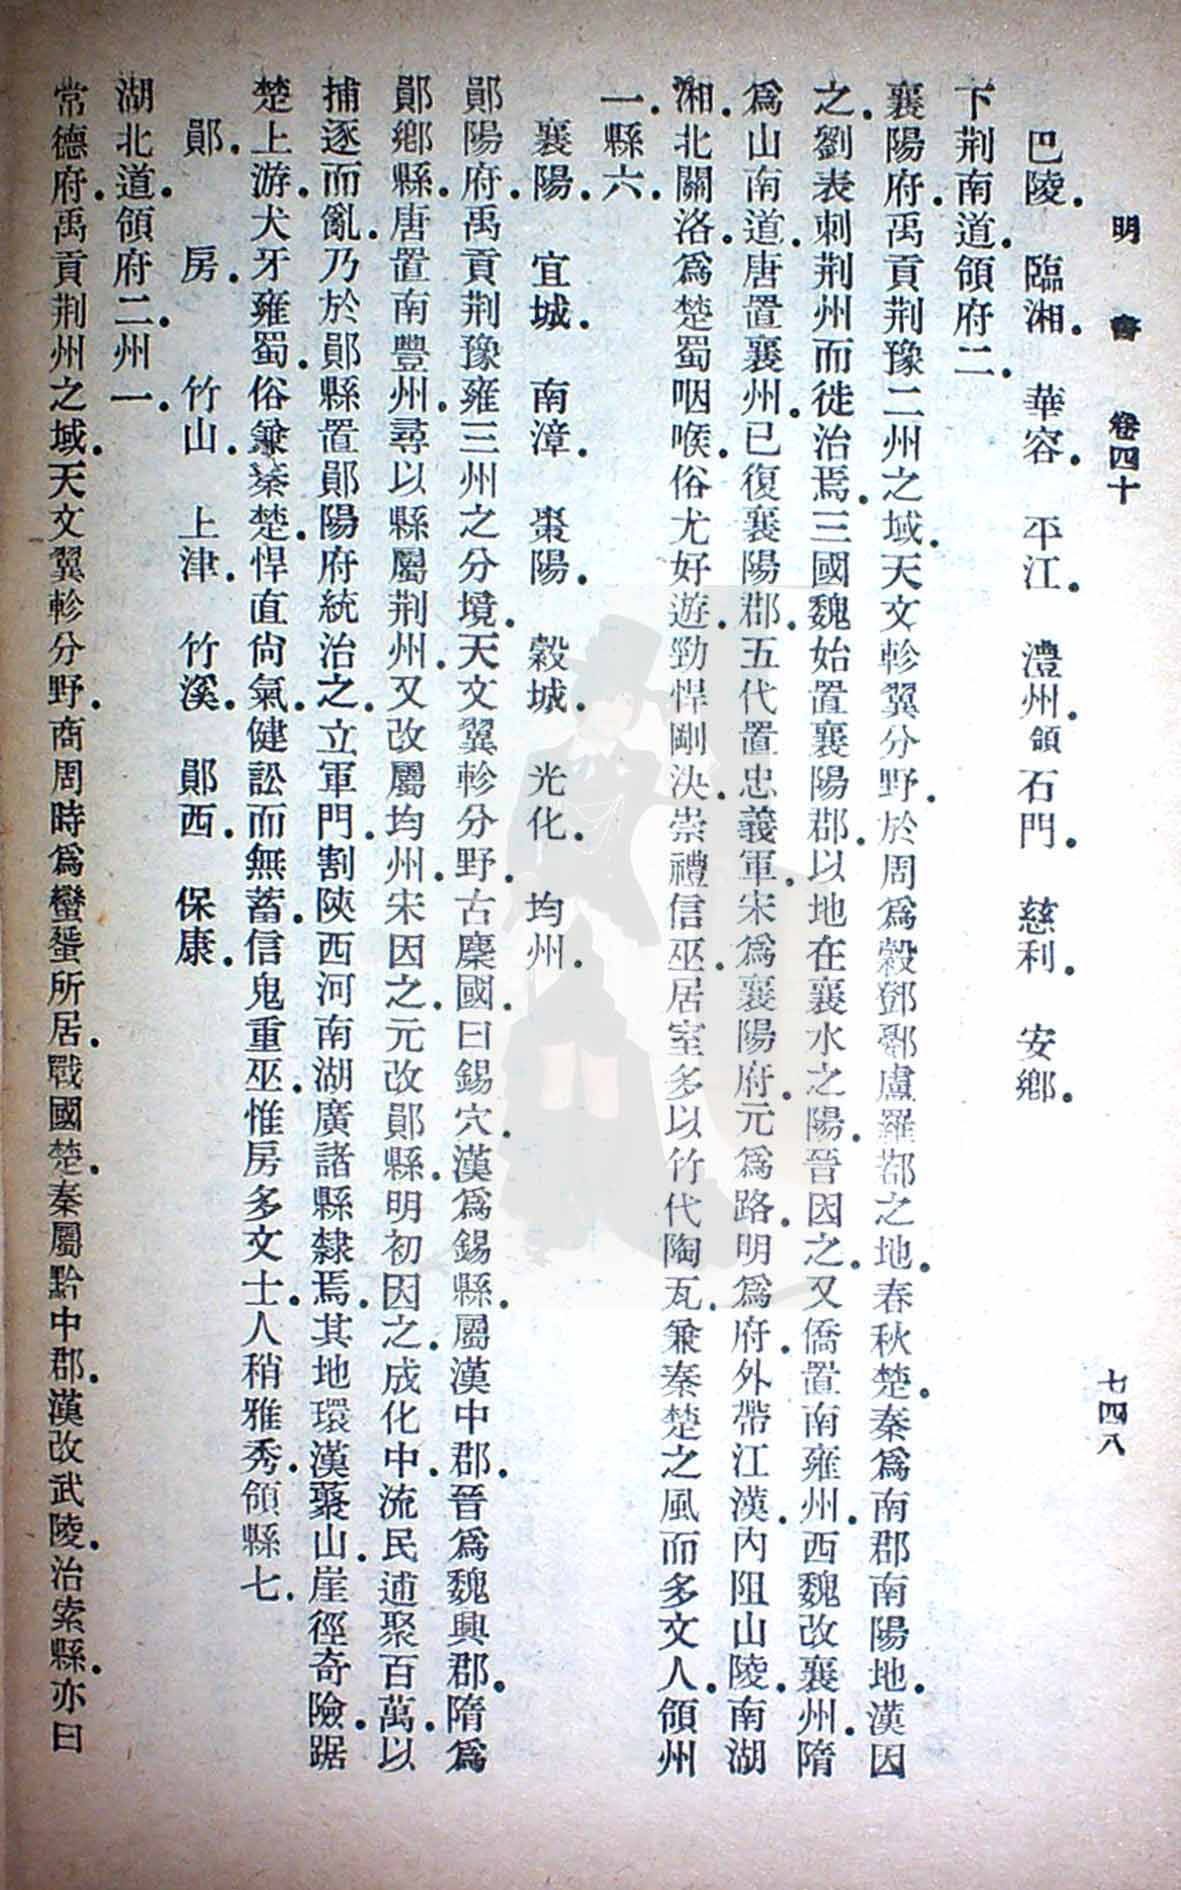 明書 卷四十 七四八
巴陵. 臨湘. 華容. 平江. 澧州.領石門. 慈利. 安鄉.
下荆南道.領府二.
襄陽府.禹貢荆豫二州之域.天文軫翼分野.於周爲穀鄧鄾盧羅鄀之地.春秋楚.秦爲南郡南陽地.漢因
之.劉表刺荆州而徙治焉.三國魏始置襄陽郡.以地在襄水之陽.晉因之.又僑置南雍州.西魏改襄州.隋
爲山南道.唐置襄州.已復襄陽郡.五代置忠義軍.宋爲襄陽府.元爲路.明爲府.外帶江漢.內阻山陵.南湖
湘.北關洛.爲楚蜀咽喉.俗尤好遊.勁悍剛決.崇禮信巫.居室多以竹代陶瓦.兼秦楚之風而多文人.領州
一.縣六.
襄陽. 宜城. 南漳. 棗陽. 穀城. 光化. 均州.
鄖陽府.禹貢荆豫雍三州之分境.天文翼軫分野.古麇國.曰錫穴.漢爲錫縣.屬漢中郡.晉爲魏興郡.隋爲
鄖鄉縣.唐置南豐州.尋以縣屬荆州.又改屬均州.宋因之.元改鄖縣.明初因之.成化中.流民逋聚百萬.以
捕逐而亂.乃於鄖縣置鄖陽府統治之.立軍門.割陝西河南湖廣諸縣隸焉.其地環漢蘗山.崖徑奇險.踞
楚上游.犬牙雍蜀.俗兼秦楚.悍直尙氣.健訟而無蓄.信鬼重巫.惟房多文士.人稍雅秀.領縣七.
鄖. 房. 竹山. 上津. 竹溪. 鄖西. 保康.
湖北道.領府二.州一.
常德府.禹貢荆州之域.天文翼軫分野.商周時爲蠻蜑所居.戰國楚.秦屬黔中郡.漢改武陵.治索縣.亦曰